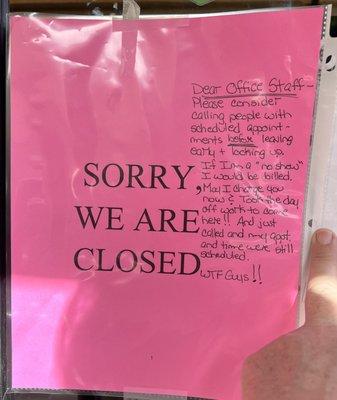 Dear Office Staff -
Please consider
calling people with
scheduled appoint-
ments before leaving
early + locking up.
If I'm a "no show"
I would be billed.
May I charge you
now? I took the day
off work to come
here!! And just
called and my appt
and time were still
scheduled.
WTF Guys!!
SORRY,
WE ARE
CLOSED